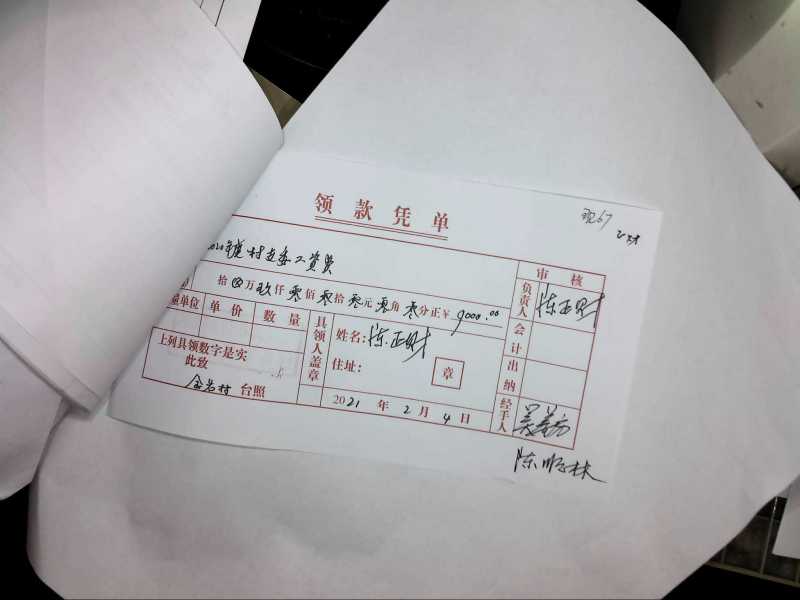 领款凭单
现67
村支委工资
拾⊗万玖仟零佰零拾零元零角零分正¥9000.00
审核
负责人 陈正财
单位 单价 数量
会计
具领人盖章
姓名:陈正财
住址:
章
出纳
上列具领数字是实
此致
金岩村 台照
2021年2月4日
经手人
陈顺林